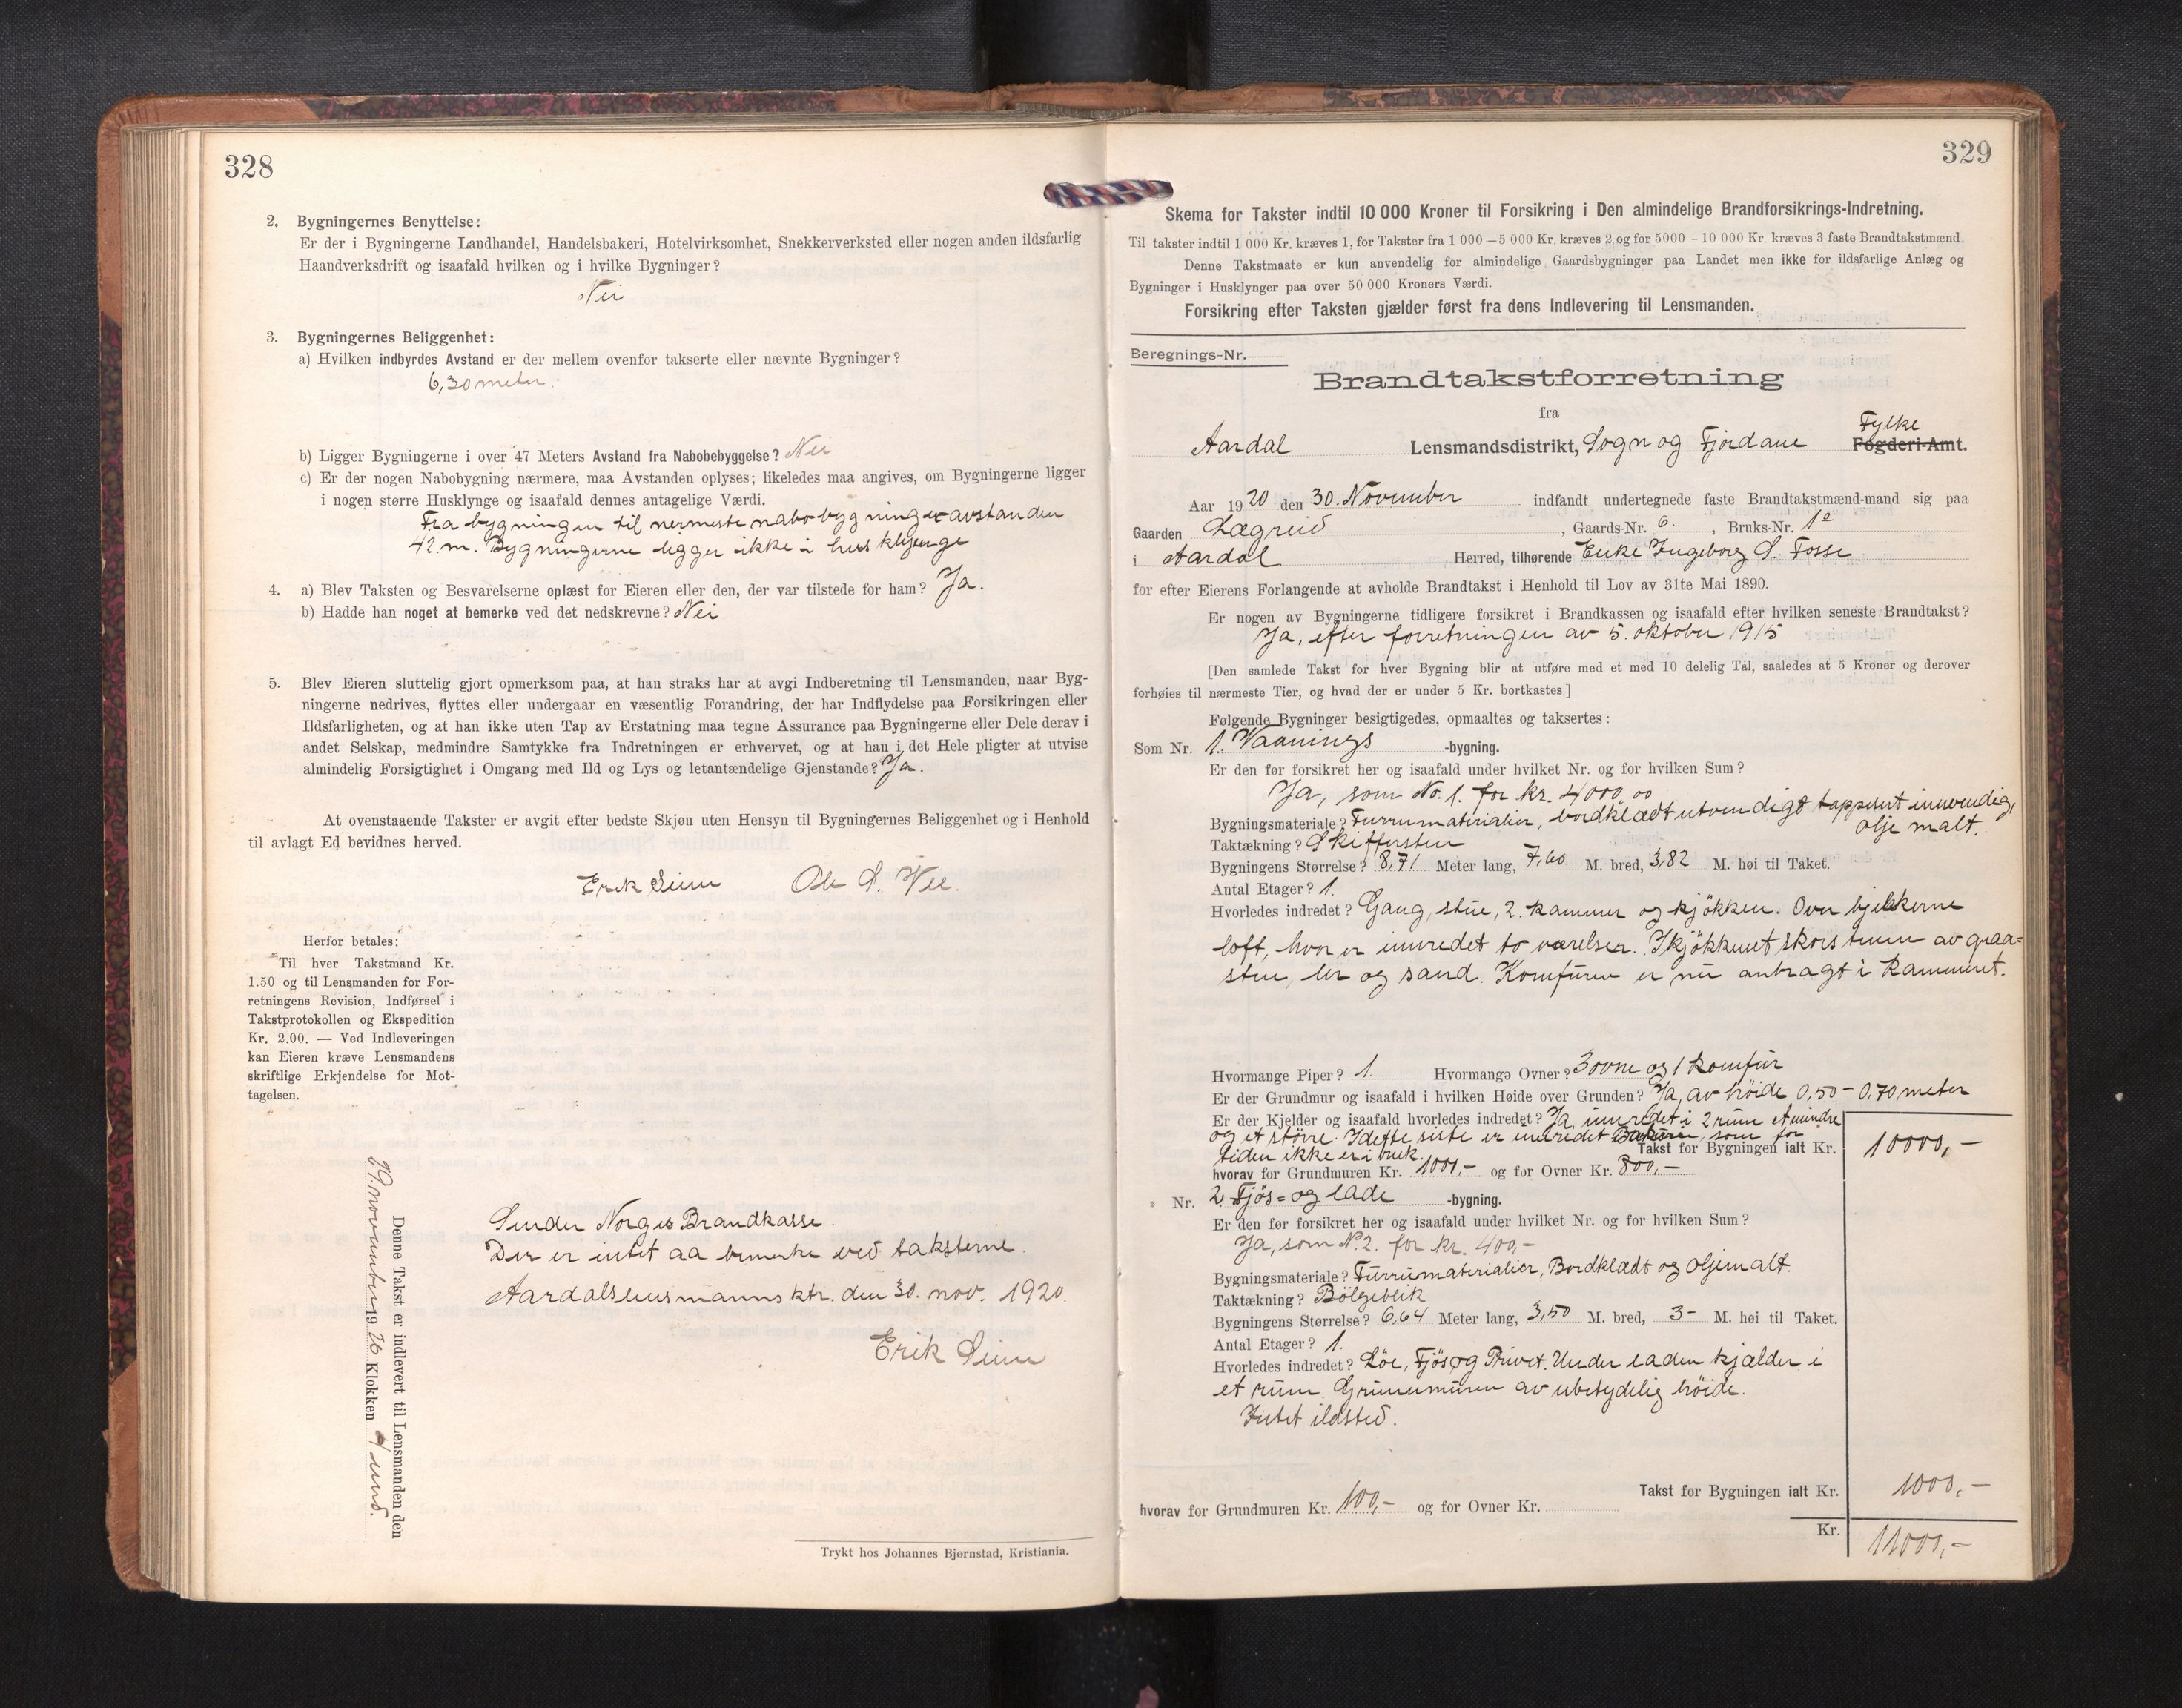 328
2. Bygningernes Benyttelse:
Er der i Bygningerne Landhandel, Handelsbakeri, Hotelvirksomhet, Snekkerverksted eller nogen anden ildsfarlig
Haandverksdrift og isaafald hvilken og i hvilke Bygninger?
Nei
3. Bygningernes Beliggenhet:
a) Hvilken indbyrdes Avstand er der mellem ovenfor takserte eller nævnte Bygninger?
6,30 meter.
b) Ligger Bygningerne i over 47 Meters Avstand fra Nabobebyggelse? Nei
c) Er der nogen Nabobygning nærmere, maa Avstanden oplyses; likeledes maa angives, om Bygningerne ligger
i nogen større Husklynge og isaafald dennes antagelige Værdi.
Fra bygningen til nermeste nabobygning er avstanden
42 m. Bygningerne ligger ikke i husklynge
4. a) Blev Taksten og Besvarelserne oplæst for Eieren eller den, der var tilstede for ham? Ja.
b) Hadde han noget at bemerke ved det nedskrevne? Nei
5. Blev Eieren sluttelig gjort opmerksom paa, at han straks har at avgi Indberetning til Lensmanden, naar Byg-
ningerne nedrives, flyttes eller undergaar en væsentlig Forandring, der har Indflydelse paa Forsikringen eller
Ildsfarligheten, og at han ikke uten Tap av Erstatning maa tegne Assurance paa Bygningerne eller Dele derav i
andet Selskap, medmindre Samtykke fra Indretningen er erhvervet, og at han i det Hele pligter at utvise
almindelig Forsigtighet i Omgang med Ild og Lys og letantændelige Gjenstande? Ja.
At ovenstaaende Takster er avgit efter bedste Skjøn uten Hensyn til Bygningernes Beliggenhet og i Henhold
til avlagt Ed bevidnes herved.
Erik Seim Ole S. Vee.
Herfor betales:
Til hver Takstmand Kr.
1.50 og til Lensmanden for For-
retningens Revision, Indførsel i
Takstprotokollen og Ekspedition
Kr. 2.00. — Ved Indleveringen
kan Eieren kræve Lensmandens
skriftlige Erkjendelse for Mot-
tagelsen.
Denne Takst er indlevert til Lensmanden den
29. november 1920 Klokken 4 em.
Sender Norges Brandkasse.
Der er intet aa bemerke ved taksterne.
Aardal lensmannsktr. den 30. nov. 1920.
Erik Seim
Trykt hos Johannes Bjørnstad, Kristiania.
329
Skema for Takster indtil 10 000 Kroner til Forsikring i Den almindelige Brandforsikrings-Indretning.
Til takster indtil 1 000 Kr. kræves 1, for Takster fra 1 000 — 5 000 Kr. kræves 2 og for 5000 - 10 000 Kr kræves 3 faste Brandtakstmænd.
Denne Takstmaate er kun anvendelig for almindelige Gaardsbygninger paa Landet men ikke for ildsfarlige Anlæg og
Bygninger i Husklynger paa over 50 000 Kroners Værdi.
Forsikring efter Taksten gjælder først fra dens Indlevering til Lensmanden.
Beregnings-Nr.
Brandtakstforretning
fra
Fylke
Aardal Lensmandsdistrikt, Sogn og Fjordane Fogderi-Amt.
Aar 1920 den 30. November indfandt undertegnede faste Brandtakstmænd-mand sig paa
Gaarden Lægreid, Gaards-Nr. 6., Bruks-Nr. 12
i Aardal Herred, tilhørende Enke Ingeborg S. Fosse
for efter Eierens Forlangende at avholde Brandtakst i Henhold til Lov av 31te Mai 1890.
Er nogen av Bygningerne tidligere forsikret i Brandkassen og isaafald efter hvilken seneste Brandtakst?
Ja, efter forretningen av 5. oktober 1915
[Den samlede Takst for hver Bygning blir at utføre med et med 10 delelig Tal, saaledes at 5 Kroner og derover
forhøies til nærmeste Tier, og hvad der er under 5 Kr. bortkastes.]
Følgende Bygninger besigtigedes, opmaaltes og taksertes:
Som Nr. 1. Vaanings -bygning.
Er den før forsikret her og isaafald under hvilket Nr. og for hvilken Sum?
Ja, som No. 1. for kr. 4000,00
Bygningsmateriale? Furrumaterialier, bordklædt utvendigt tappesert innvendig,
olje malt.
Taktækning? Skiffersten
Bygningens Størrelse? 8,71 Meter lang, 7,60 M. bred, 3,82 M. høi til Taket.
Antal Etager? 1.
Hvorledes indredet? Gang, stue, 2. kammer og kjökken. Over bjelkerne
loft, hvor er innredet to værelser. I kjökkenet skorstenen av graa=
sten, ler og sand. Komfuren er nu anbragt i kammeret.
Hvormange Piper? 1. Hvormange Ovner? 3 ovne og 1 komfur
Er der Grundmur og isaafald i hvilken Høide over Grunden? Ja, av höide 0,50 - 0,70 meter
Er der Kjelder og isaafald hvorledes indredet? Ja, innredet i 2 rum et mindre
og et större. I dette siste er innredet som for
tiden ikke er i bruk. Takst for Bygningen ialt Kr. 10000,-
hvorav for Grundmuren Kr. 1000,- og for Ovner Kr. 800,-
Nr. 2 Fjös= og lade -bygning.
Er den før forsikret her og isaafald under hvilket Nr. og for hvilken Sum?
Ja, som N. 2. for kr. 400,-
Bygningsmateriale? Furrumaterialier, Bordklædt og oljemalt.
Taktækning? Bölgeblik
Bygningens Størrelse? 6,64 Meter lang, 3,50 M. bred, 3- M. høi til Taket.
Antal Etager? 1.
Hvorledes indredet? Löe, Fjös og Privet. Under laden kjælder i
et rum. Grunnmuren av ubetydelig höide.
Intet ildsted.
Takst for Bygningen ialt Kr. 1000,-
hvorav for Grundmuren Kr. 100,- og for Ovner Kr.
Kr. 11000,-